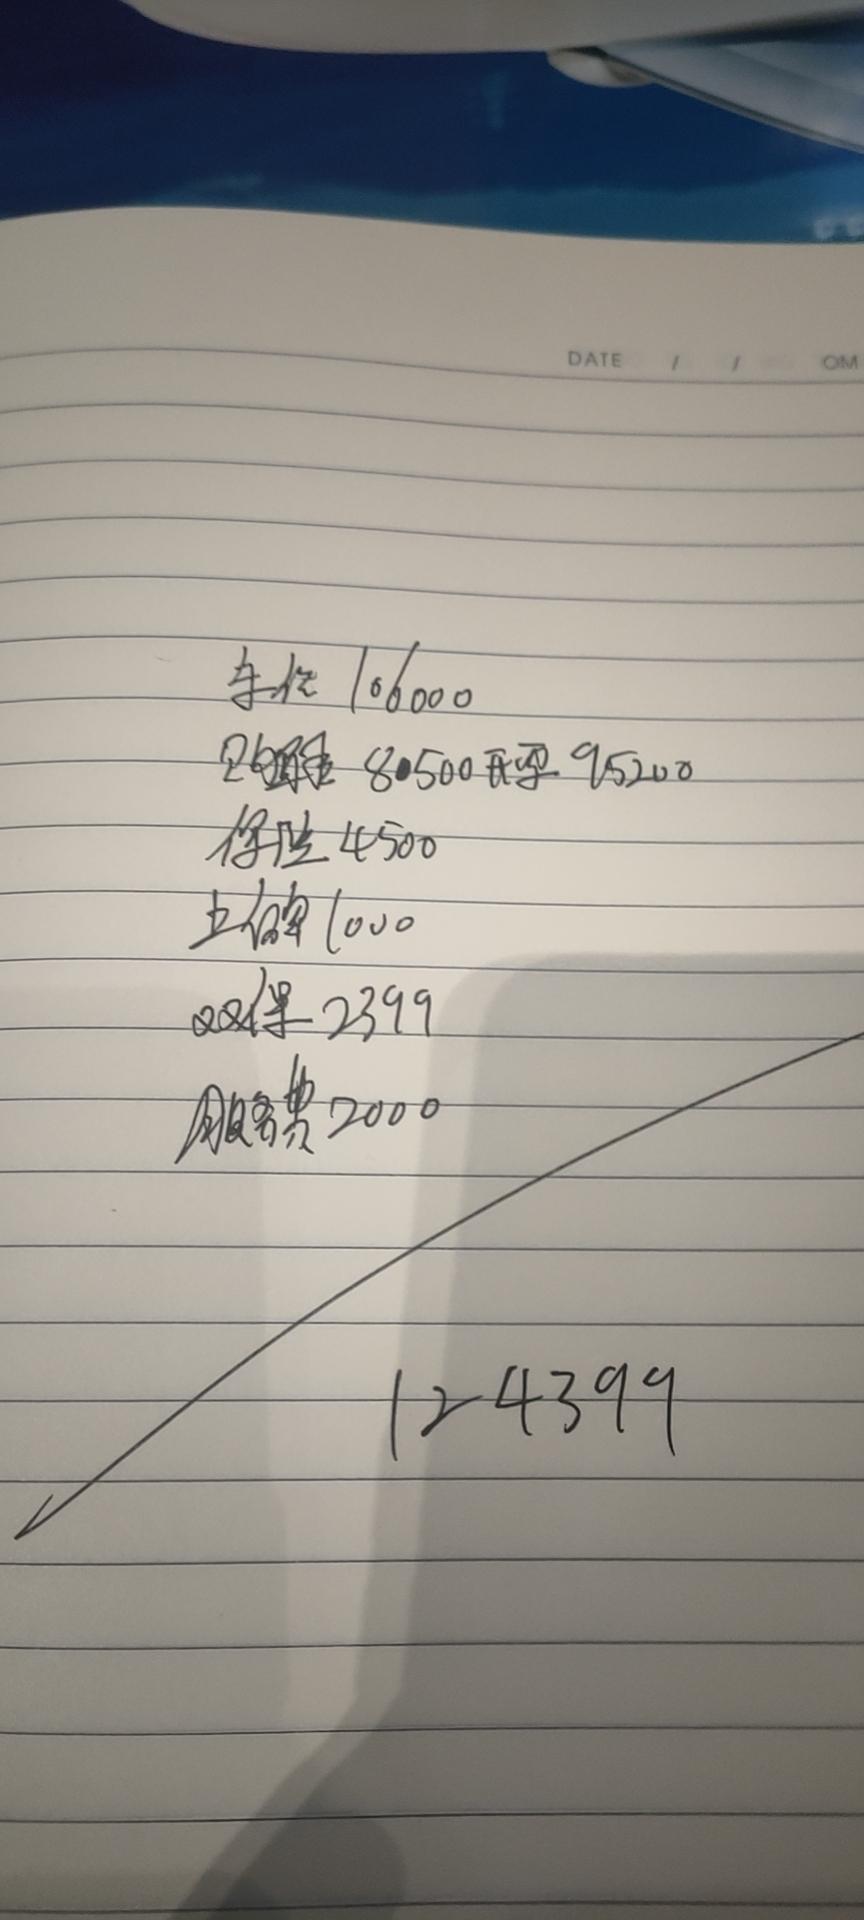 DATE / / OM
车价 106000
8500 开票 95200
保险 4500
上牌 1000
双保 2399
服务费 2000
124399